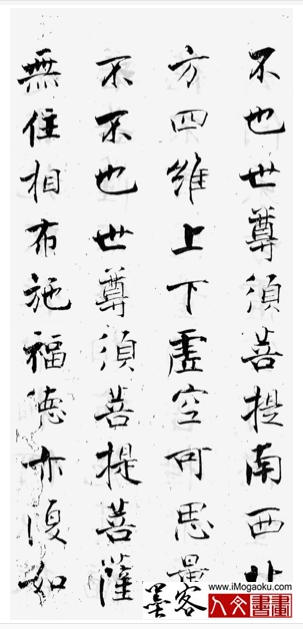 不也世尊須菩提南西北
方四維上下虛空可思量
不不也世尊須菩提菩薩
無住相布施福德亦復如
www.iMogaoku.com
墨客
人文書畫